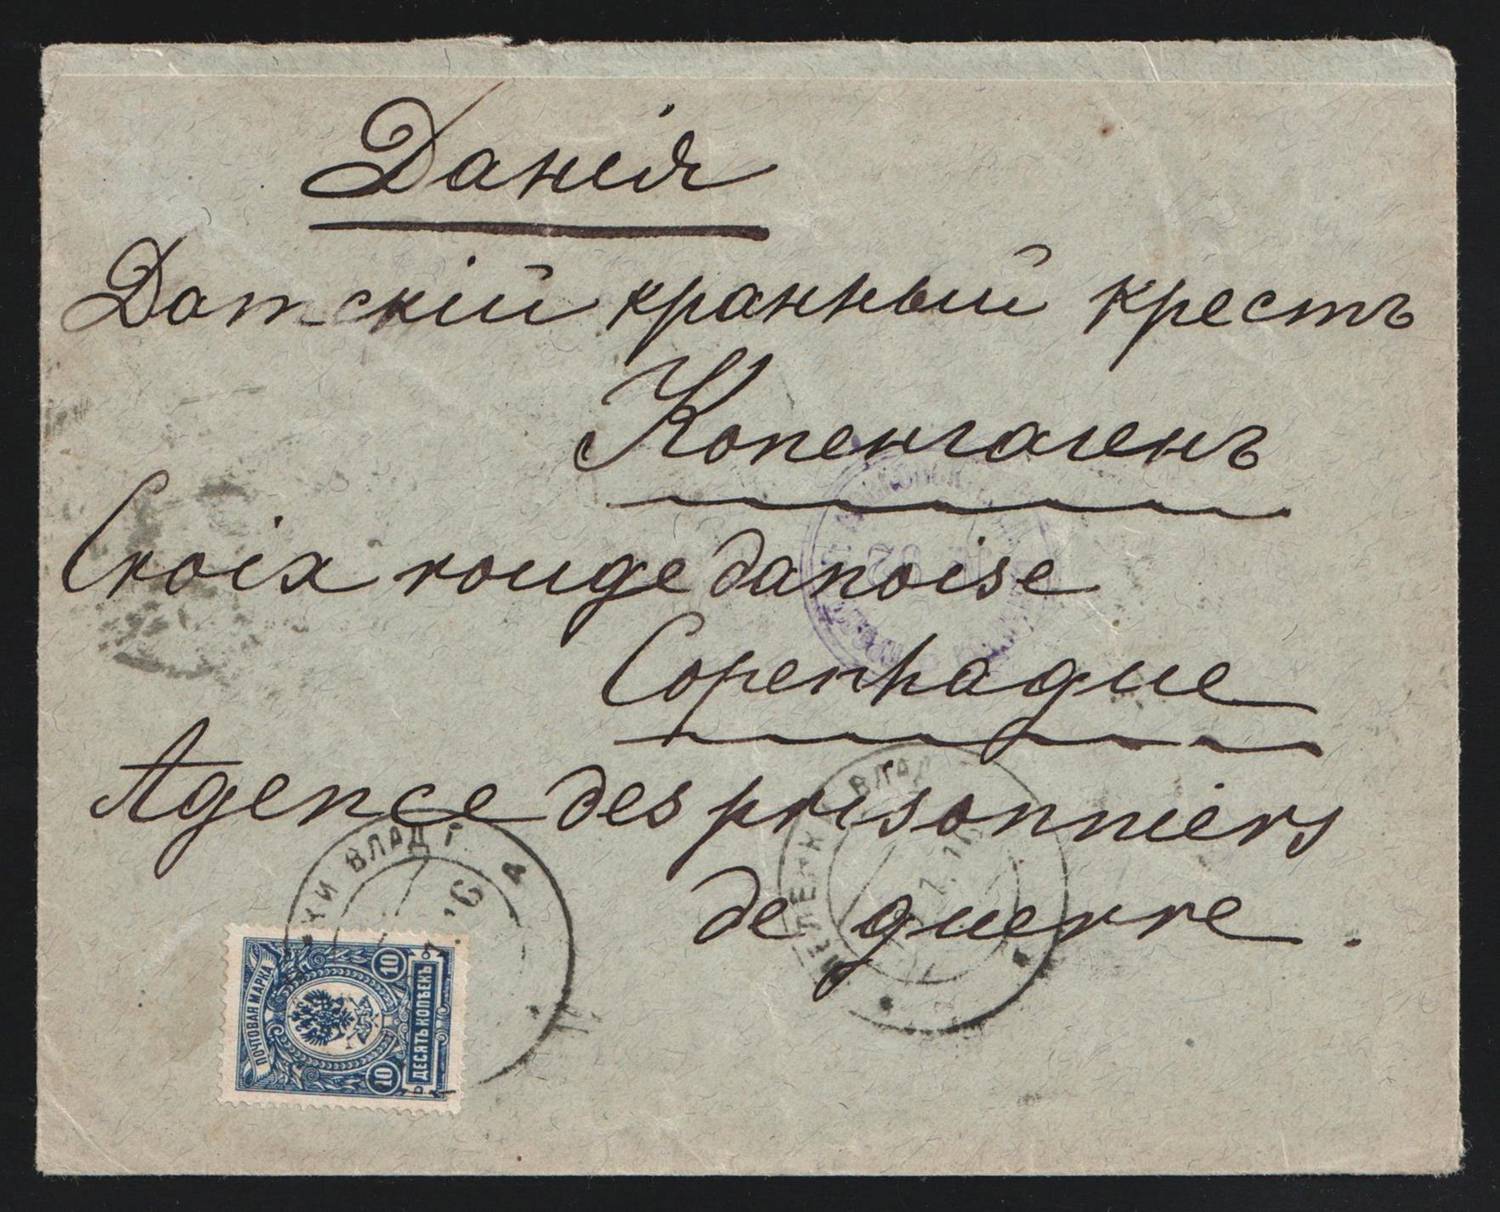 Данія
Датскій кранный крестъ
Копенгагенъ
Croix rouge danoise
Copenhague
Agence des prisonniers
de guerre.
ВЛАД Г
ВЛАД
ПОЧТОВАЯ МАРКА
10
10
ДЕСЯТЬ КОПѢЕКЪ